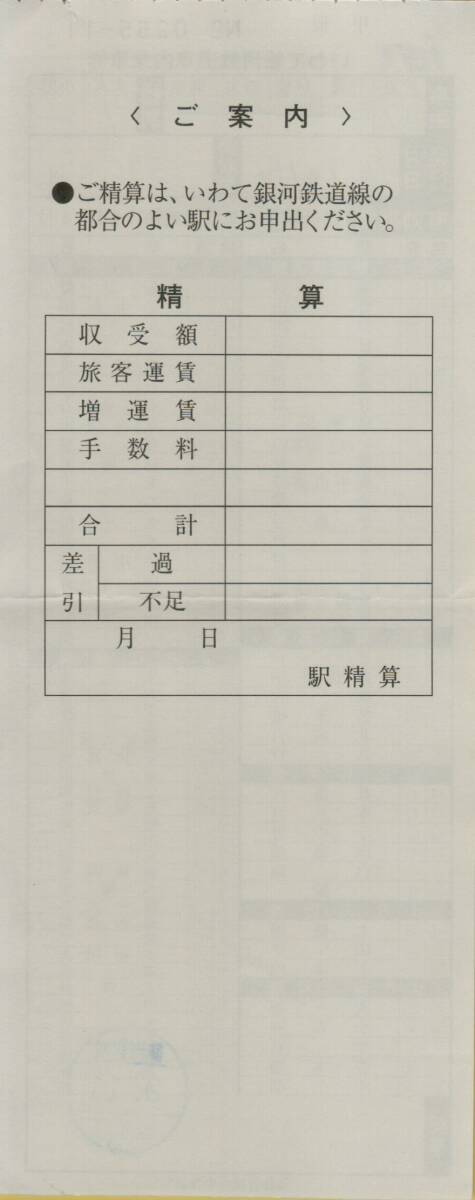 〈ご案内〉
●ご精算は、いわて銀河鉄道線の
都合のよい駅にお申出ください。
精算
収受額
旅客運賃
増運賃
手数料
合計
差引 過
不足
月 日
駅精算